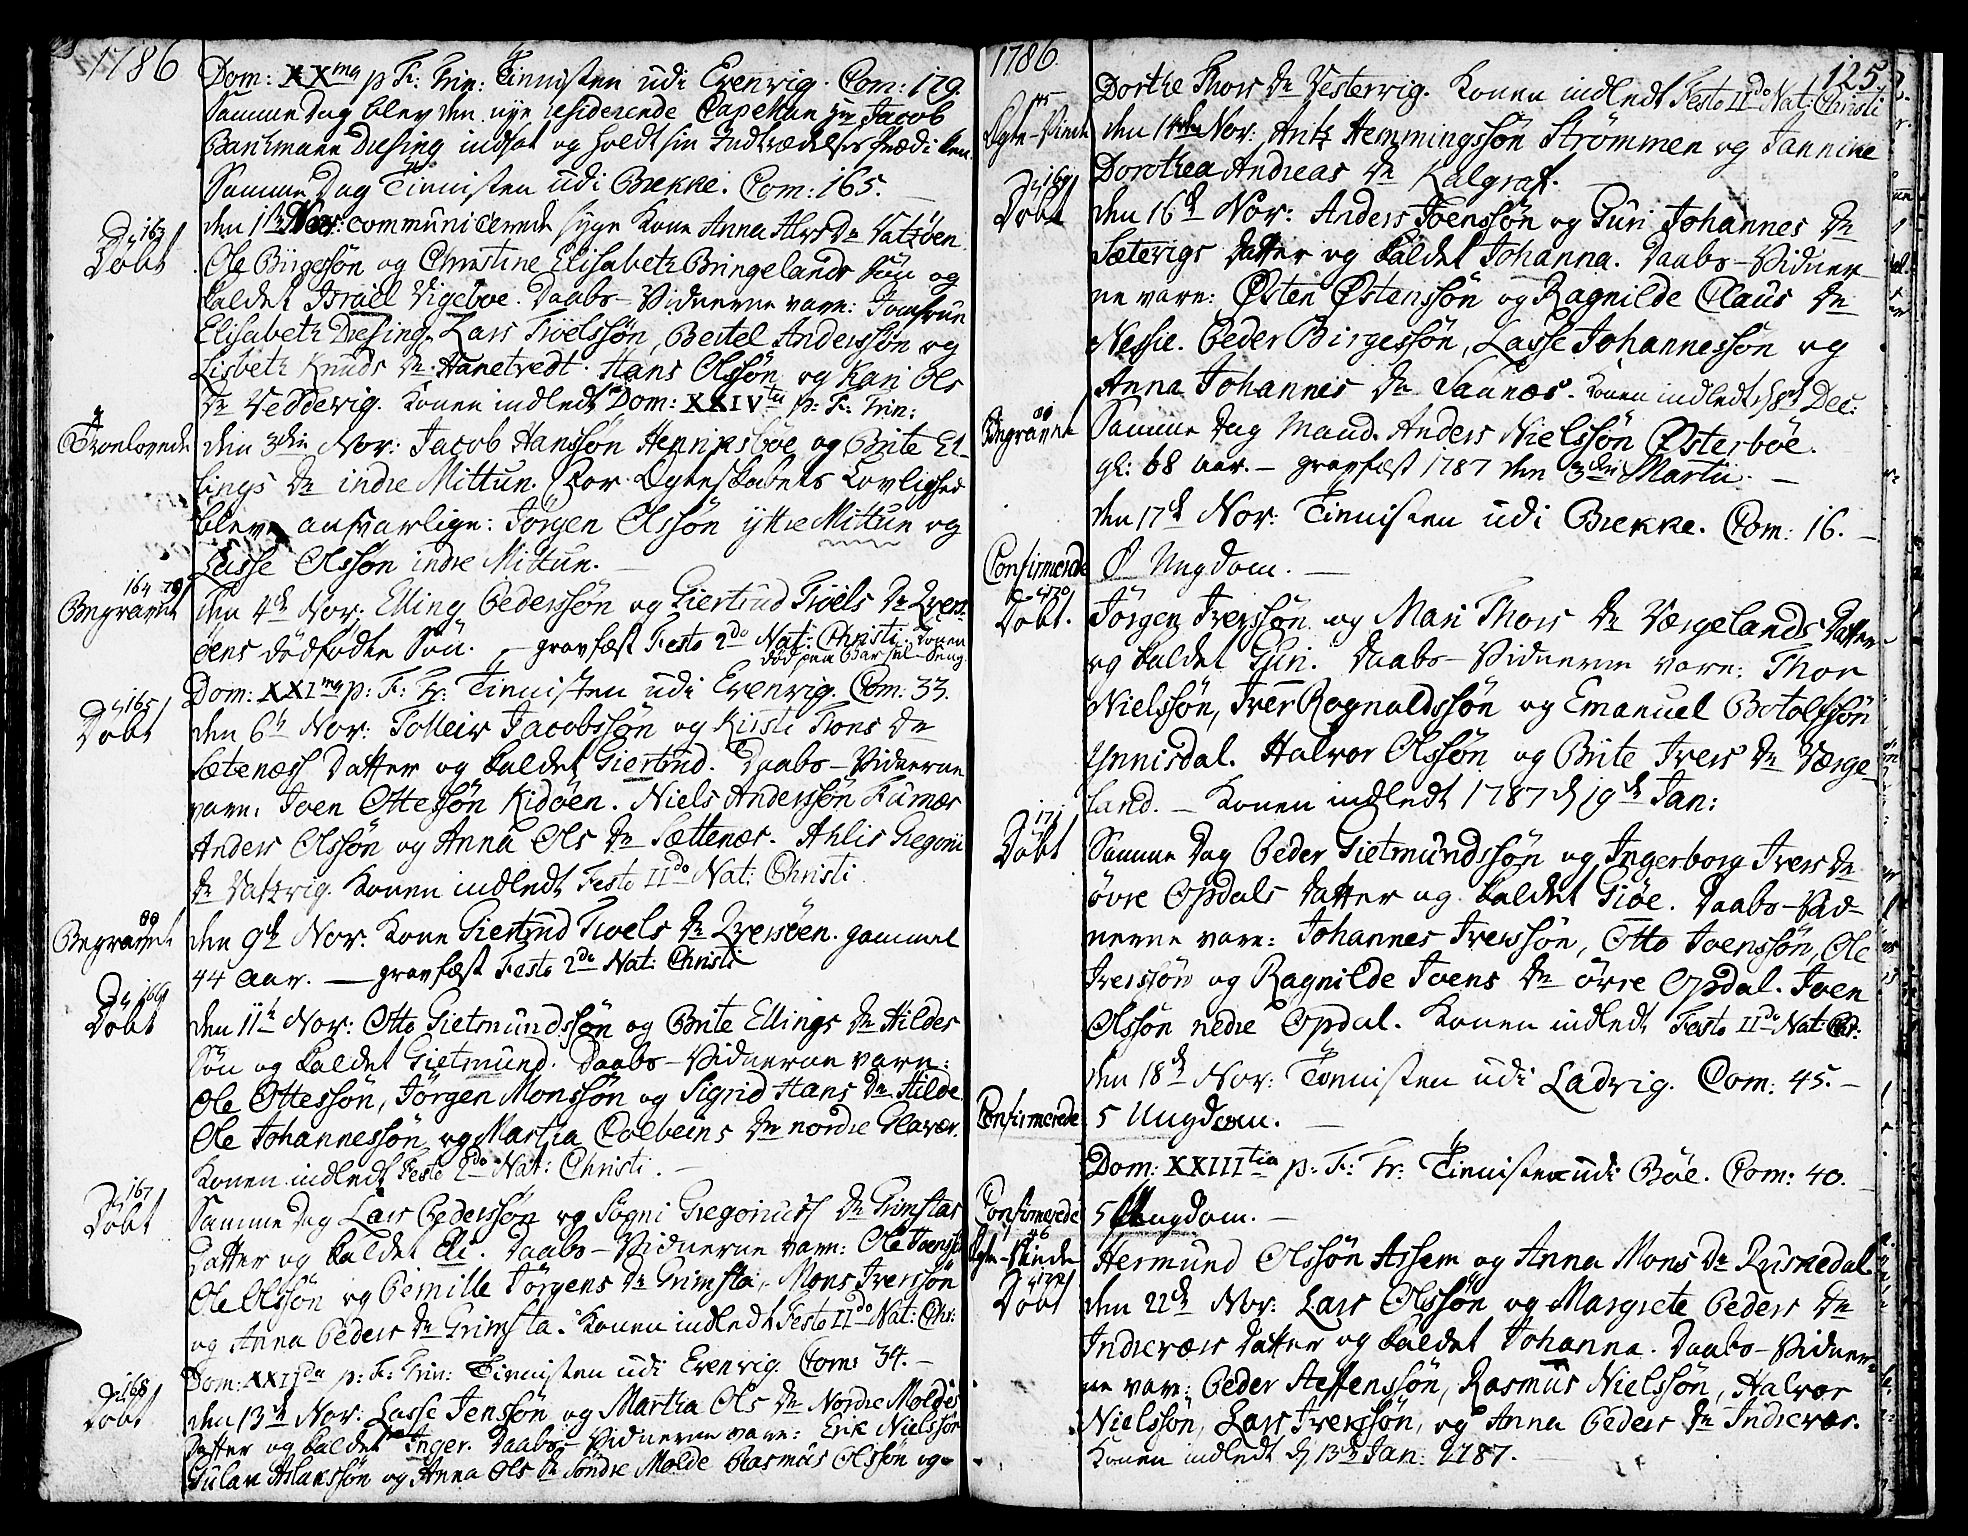 1786
Dom: XXma p F: Trin: Tienisten udi Evenvig. Com: 179.
Samme Dag blev den nye residerende Capellan Hr Jacob
Bankmann Diesing indsat og holdt sin Indtrædelses Prædiken.
Samme Dag Tienisten udi Brekke. Com: 165.
den 1ste Nov: communicerede syge Kone Anna Ahrs de Vatzöen
163 Döbt
Ole Birgessön og Christine Elisabeth Bringelands Sön og
kaldet Israël Vigeboe. Daabs-Vidnerne vare: Jomfrue
Elisabeth Diesing, Lars Troelssön, Bertel Anderssön og
Lisbeth Knuds de Hanetvedt. Hans Olssön og Kari Ols
de Veddevig. Konen indledt Dom: XXIVta p: F: Trin:
Troelovede
den 3die Nov: Jacob Hanssön Henriksböe og Brite El-
lings de indre Mittun. For Egteskabets Lovlighed
bleve ansvarlige: Jörgen Olssön yttre Mittun og
Lasse Olssön indre Mittun.
164 79 Begravet
den 4de Nov: Elling Pederssön og Giertrud Troels de Qvers-
öens dödfödte Sön. — gravfæst Festo 2do Nat: Christi. Konen
död paa Barsel-Seng
Dom: XXIma p: F: Tr: Tienisten udi Evenvig. Com: 33.
165 Döbt
den 6te Nov: Tolleiv Jacobssön og Kirsti Thors de
Sætenæss Datter og kaldet Giertrud. Daabs-Vidnerne
vare: Joen Ottessön Kidöen. Niels Anderssön
Anders Olssön og Anna Ols de Sættenæs. Ahlis Gregorii
de Vatzvig. Konen indledt Festo IIdo Nat: Christi
80 Begravet
den 9de Nov: Kone Giertrud Troels de Qversöen. gammel
44 Aar. — gravfæst Festo 2do Nat: Christi
166 Döbt
den 11te Nov: Otto Gietmundssön og Brite Ellings de Hildes
Sön og kaldet Gietmund. Daabs-Vidnerne vare:
Ole Ottessön, Jörgen Monssön og Sigrid Hans de Hilde
Ole Johannessön og Martha Colbeins de nordre Glavær.
Konen indledt Festo 2do Nat: Christi.
167 Döbt
Samme Dag Lars Pederssön og Sögni Gregorius de Grimstas
Datter og kaldet Eli. Daabs-Vidnerne vare: Ole Joenssön
Ole Olssön og Pernille Jörgens de Grimsta, Mons Iverssön
og Anna Peders de Grimsta. Konen indledt Festo IIdo Nat: Chr:
Dom: XXIIda p: F: Trin: Tienisten udi Evenvig. Com: 34.
168 Döbt
den 13de Nov: Lasse Jenssön og Martha Ols de Nordre Moldes
Datter og kaldet Inger. Daabs-Vidnerne vare: Erik Nielssön
Gulak Aslakssön og Anna Ols de Söndre Molde Rasmus Olssön og
1786
125
Dorthe Thors de Vesterviig. Konen indledt Festo IIdo Nat: Christi
Egte-Viede
den 14de Nov: Anfz Hemmingssön Strömmen og Jannine
Dorothea Andreas de Kalgraf.
169 Döbt
den 16de Nov: Anders Joenssön og Guri Johannes de
Sætervigs Datter og kaldet Johanna. Daabs-Vidner-
ne vare: Østen Østenssön og Ragnilde Claus de
Nessie. Peder Birgessön, Lasse Johannessön og
Anna Johannes de Saunæs. Konen indledt d 8de Dec:
Begravet
Samme Dag Mand. Anders Nielssön Österböe.
gl: 68 Aar. — gravfæst 1787 den 3die Martii. —
den 17de Nov: Tienisten udi Brekke. Com: 16. —
Confirmerede
Ø Ungdom. —
170 Döbt.
Jörgen Iverssön og Mari Thors de Værgelands Datter
og kaldet Guri. Daabs-Vidnerne vare: Thor
Nielssön, Iver Ragnaldssön og Emanuel Botolfssön
Ynnisdal. Halvor Olssön og Brite Ivers de Værge-
land. — Konen indledt 1787 d 19de Jan:
171 Döbt
Samme Dag Peder Gietmundssön og Ingerborg Ivers de
övre Opdals Datter og kaldet Giöe. Daabs-Vid-
nerne vare: Johannes Iverssön, Otto Joenssön, Ole
Iverssön og Ragnilde Joens de övre Opdal. Joen
Olssön nedre Opdal. Konen indledt Festo IIdo Nat: Chr:
den 18de Nov: Tienisten udi Ladvig. Com: 45. —
Confirmerede
5 Ungdom. —
Dom: XXIIItia p: F: Tr: Tienisten udi Böe. Com: 40.
Confirmerede
5 Ungdom. —
46 Egte-Viede
Hermund Olssön Assem og Anna Mons de Rusnedal.
172 Döbt
den 22de Nov: Lars Olssön og Margrete Peders de
Indreværs Datter og kaldet Johanna. Daabs-Vidner-
ne vare: Peder Steffenssön, Rasmus Nielssön, Halvor
Nielssön, Lars Iverssön, og Anna Peders de Indrevær.
Konen indledt d 13de Jan: 1787. —